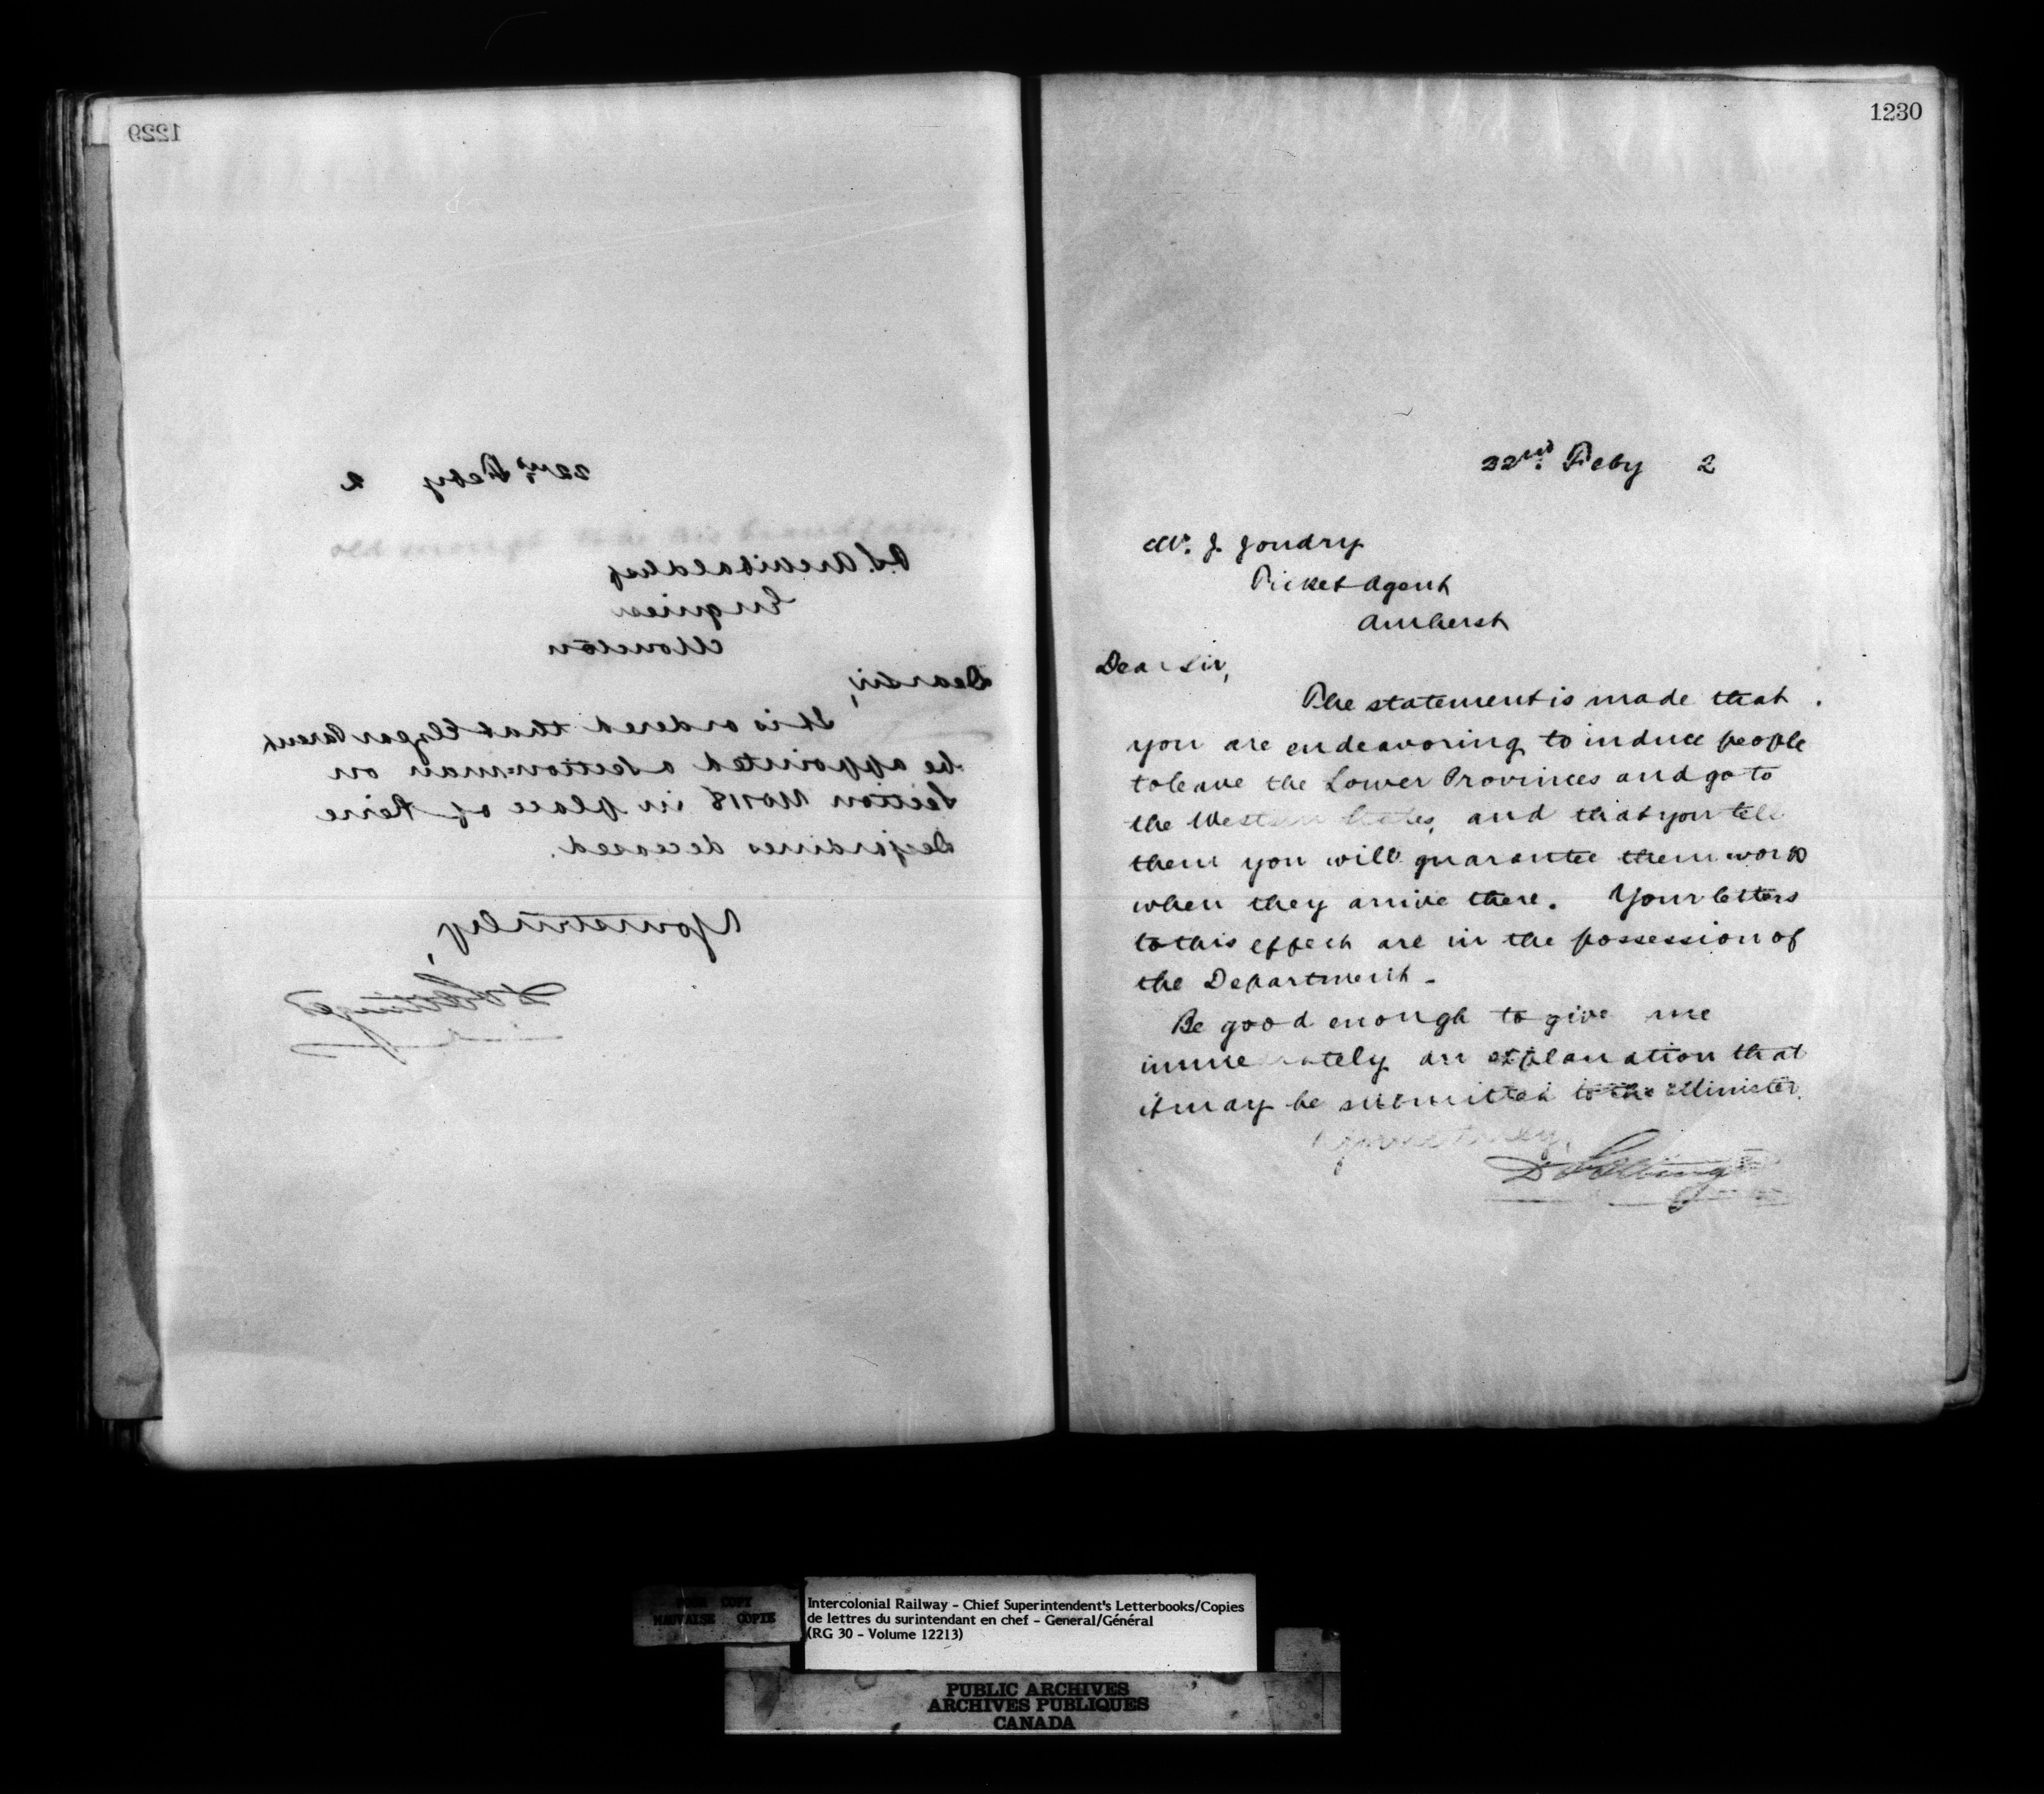 1229
22nd Feby 2
P.S. Archibald Esq
Engineer
Moncton
Dear Sir,
It is ordered that Elzear Parent
be appointed a section-man on
Section No 118 in place of Pierre
Desjardines deceased.
Yours truly,
D Pottinger
1230
22nd Feby 2
Mr. J. Joudry
Ticket Agent
Amherst
Dear Sir,
The statement is made that
you are endeavoring to induce people
to leave the Lower Provinces and go to
the Western States, and that you tell
them you will guarantee them work
when they arrive there. Your letters
to this effect are in the possession of
the Department -
Be good enough to give me
immediately an explanation that
it may be submitted to the Minister.
Yours truly,
D Pottinger
POOR COPY
MAUVAISE COPIE
Intercolonial Railway - Chief Superintendent's Letterbooks/Copies
de lettres du surintendant en chef - General/Général
(RG 30 - Volume 12213)
PUBLIC ARCHIVES
ARCHIVES PUBLIQUES
CANADA